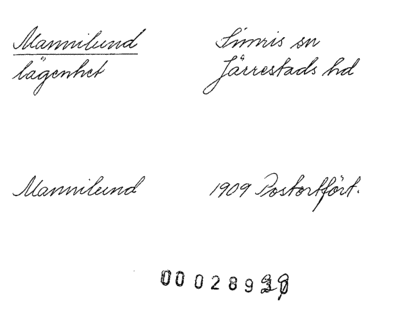 Mannilund Simris sn
lägenhet Järrestads hd
Mannilund 1909 Postortfört.
000289